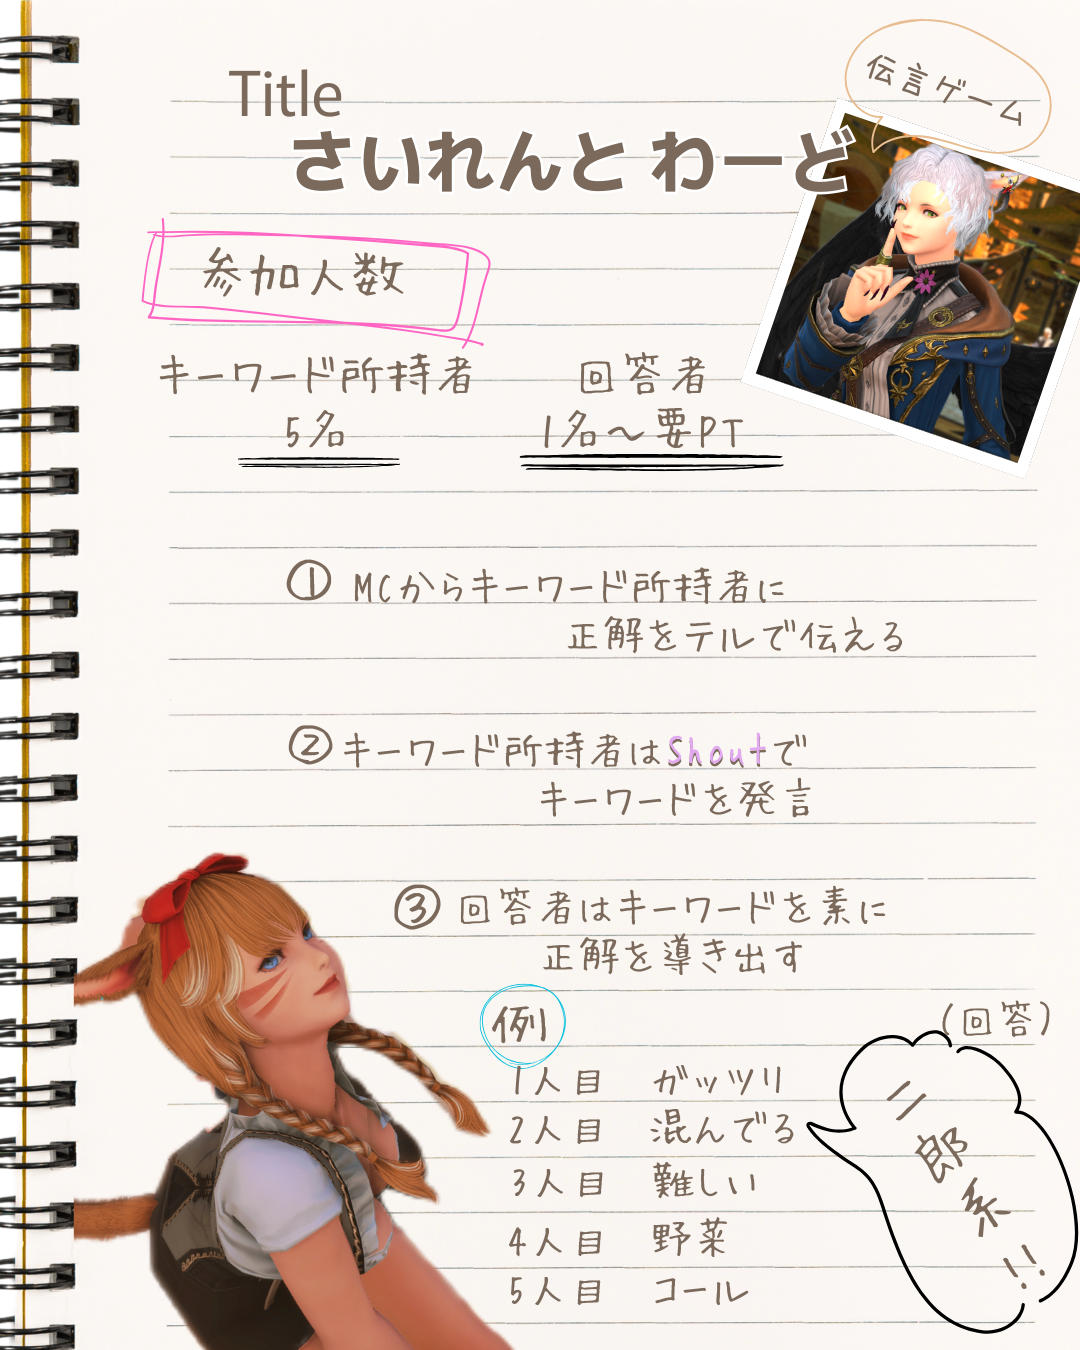 伝言ゲーム
Title
さいれんと わーど
参加人数
キーワード所持者
5名
回答者
1名〜要PT
① MCからキーワード所持者に
正解をテルで伝える
② キーワード所持者はShoutで
キーワードを発言
③ 回答者はキーワードを素に
正解を導き出す
例
1人目 ガッツリ
2人目 混んでる
3人目 難しい
4人目 野菜
5人目 コール
(回答)
二郎系!!